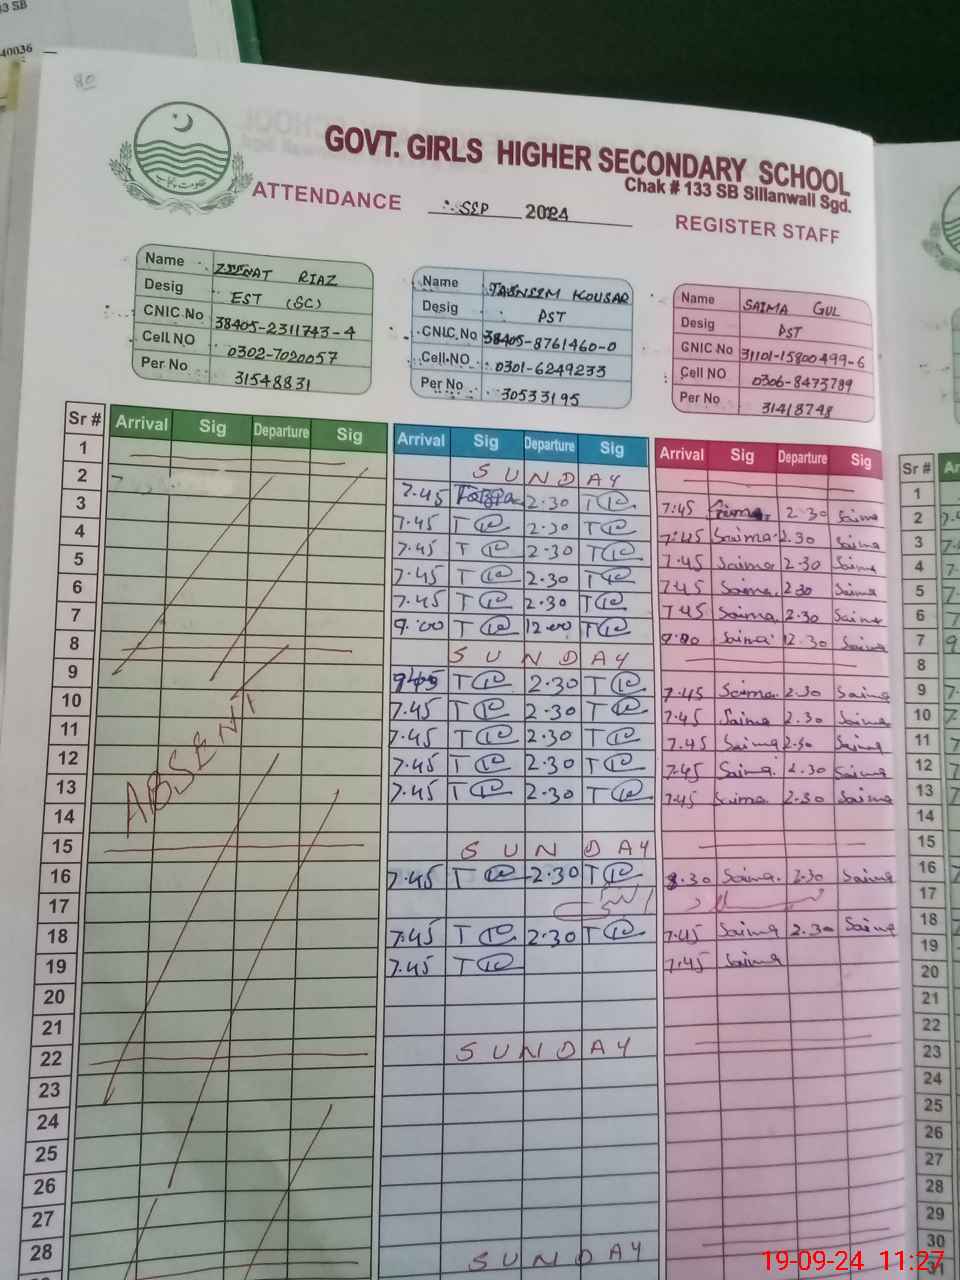 80
40036
GOVT. GIRLS HIGHER SECONDARY SCHOOL
Chak # 133 SB Sillanwali Sgd.
ATTENDANCE SEP 2024 REGISTER STAFF
Name ZEENAT RIAZ
Desig EST (SC)
CNIC No 38405-2311743-4
Cell NO 0302-7020057
Per No 31548831
Name TASNEEM KOUSAR
Desig PST
CNIC.No 38405-8761460-0
Cell NO 0301-6249233
Per No 30533195
Name SAIMA GUL
Desig PST
CNIC No 31101-15800499-6
Cell NO 0306-8473789
Per No 31418748
Sr # Arrival Sig Departure Sig Arrival Sig Departure Sig Arrival Sig Departure Sig Sr #
1 SUNDAY 1
2 7.45 2.30 7:45 2.30 Saima 2
3 7.45 T 2.30 T 7:45 Saima 2.30 Saima 3
4 7.45 T 2.30 T 7.45 Saima 2.30 Saima 4
5 7.45 T 2.30 T 7.45 Saima 2.30 Saima 5
6 7.45 T 2.30 T 7.45 Saima 2.30 Saima 6
7 9:00 T 12:00 T 9:00 Saima 12.30 Saima 7
8 SUNDAY 8
9 T 2.30 T 7.45 Saima 2.30 Saima 9
10 7.45 T 2.30 T 7.45 Saima 2.30 Saima 10
11 7.45 T 2.30 T 7.45 Saima 2.30 Saima 11
12 7.45 T 2.30 T 7.45 Saima 2.30 Saima 12
13 7.45 T 2.30 T 7.45 Saima 2.30 Saima 13
ABSENT
14 14
15 SUNDAY 15
16 7.45 T 2.30 T 8.30 Saima 2.30 Saima 16
17 17
18 7.45 T 2.30 T 7.45 Saima 2.30 Saima 18
19 7.45 T 7.45 Saima 19
20 20
21 21
22 SUNDAY 22
23 23
24 24
25 25
26 26
27 27
28 28
29
30
31
SUNDAY
19-09-24 11:27